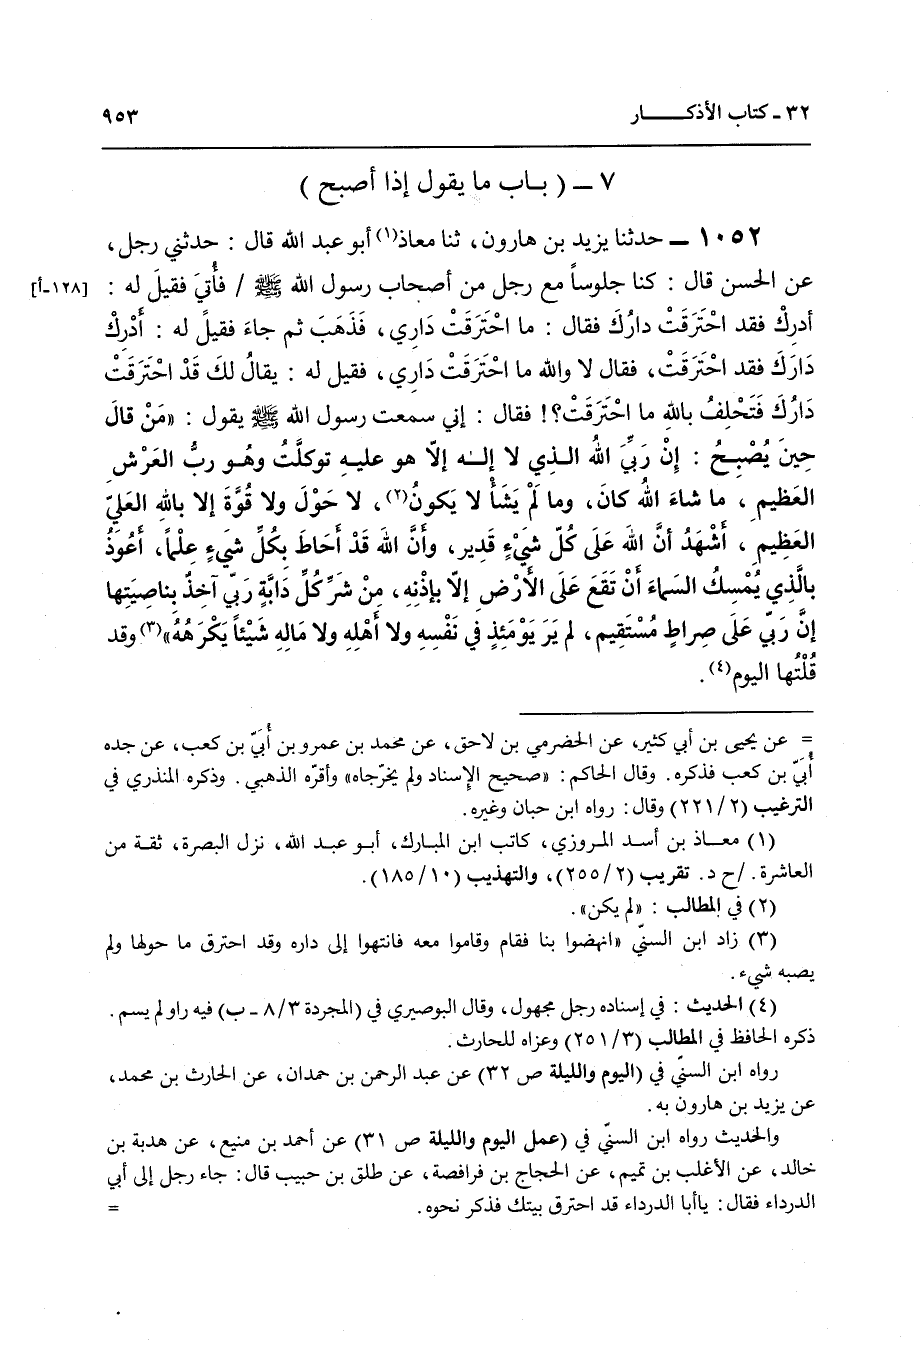 ٣٢ ـ كتاب الأذكـــــــار ٩٥٣
٧ ــ ( بـاب ما يقول إذا أصبح )
١٠٥٢ ــ حدثنا يزيد بن هارون، ثنا معاذ(١) أبو عبد الله قال : حدثني رجل،
عن الحسن قال : كنا جلوساً مع رجل من أصحاب رسول الله ﷺ / فأُتيَ فقيلَ له : [١٢٨-أ]
أدركْ فقد احْتَرَقَتْ دارُكَ فقال : ما احْتَرَقَتْ دَاري، فَذَهَبَ ثم جاءَ فقيلً له : أَدْرِكْ
دَارَكَ فقد احْتَرَقَتْ، فقال لا والله ما احْتَرَقَتْ دَاري، فقيل له : يقالُ لكَ قَدْ احْتَرَقَتْ
دَارُكَ فَتَحْلِفُ بالله ما احْتَرَقَتْ؟! فقال : إني سمعت رسول الله ﷺ يقول : «مَنْ قالَ
حِينَ يُصْبِـحُ : إِنْ رَبِّيَ اللهُ الـذي لا إلـٰـه إلاّ هو عليـهِ توكلَّتُ وهُـو ربُّ العَرْشِ
العَظيمِ ، ما شاءَ اللهُ كانَ، وما لَمْ يَشَأْ لا يَكونُ(٢)، لا حَوْلَ ولا قُوَّةَ إلا بالله العَليّ
العَظِيمِ ، أَشْهَدُ أنَّ اللهَ عَلَى كُلّ شيْءٍ قَدِير، وأنَّ اللهَ قَدْ أَحَاطَ بكُلِّ شَيءٍ عِلْماً، أَعُوَذُ
بالَّذِي يُمْسِكُ السَماءَ أنْ تَقَعَ عَلَى الأَرْضِ إلاّ بإذْنِه، مِنْ شَرِّ كُلِّ دَابَّةٍ رَبّي آخذٌ بناصِيَتِها
إنَّ رَبّي عَلَى صِراطٍ مُسْتَقِيم، لم يَرَ يَوْمَئِذٍ في نَفْسِهِ ولا أَهْلِهِ ولا مَالِهِ شَيْئاً يَكْرَهُهُ»(٣) وقد
قُلْتُها اليوم(٤).
= عن يحيى بن أبي كثير، عن الحضرمي بن لاحق، عن محمد بن عمرو بن أُبَيّ بن كعب، عن جده
أُبَيّ بن كعب فذكره. وقال الحاكم : «صحيح الإسناد ولم يخرّجاه» وأقرّه الذهبي. وذكره المنذري في
الترغيب (٢٢١/٢) وقال: رواه ابن حبان وغيره.
(١) معـاذ بن أسـد المـروزي، كاتب ابن المبارك، أبـو عبـد الله، نزل البصرة، ثقـة من
العاشرة. /خ د. تقريب (٢٥٥/٢)، والتهذيب (١٨٥/١٠).
(٢) في المطالب : «لم يكن».
(٣) زاد ابن السنّي «انهضوا بنا فقام وقاموا معه فانتهوا إلى داره وقد احترق ما حولها ولم
يصبه شيء.
(٤) الحديث : في إسناده رجل مجهول، وقال البوصيري في (المجردة ٨/٣ ـ ب) فيه راو لم يسم.
ذكره الحافظ في المطالب (٢٥١/٣) وعزاه للحارث.
رواه ابن السنّي في (اليوم والليلة ص ٣٢) عن عبد الرحمن بن حمدان، عن الحارث بن محمد،
عن يزيد بن هارون به.
والحديث رواه ابن السنّي في (عمل اليوم والليلة ص ٣١) عن أحمد بن منيع، عن هدبة بن
خالد، عن الأغلب بن تميم، عن الحجاج بن فرافصة، عن طلق بن حبيب قال: جاء رجل إلى أبي
الدرداء فقال: ياأبا الدرداء قد احترق بيتك فذكر نحوه. =